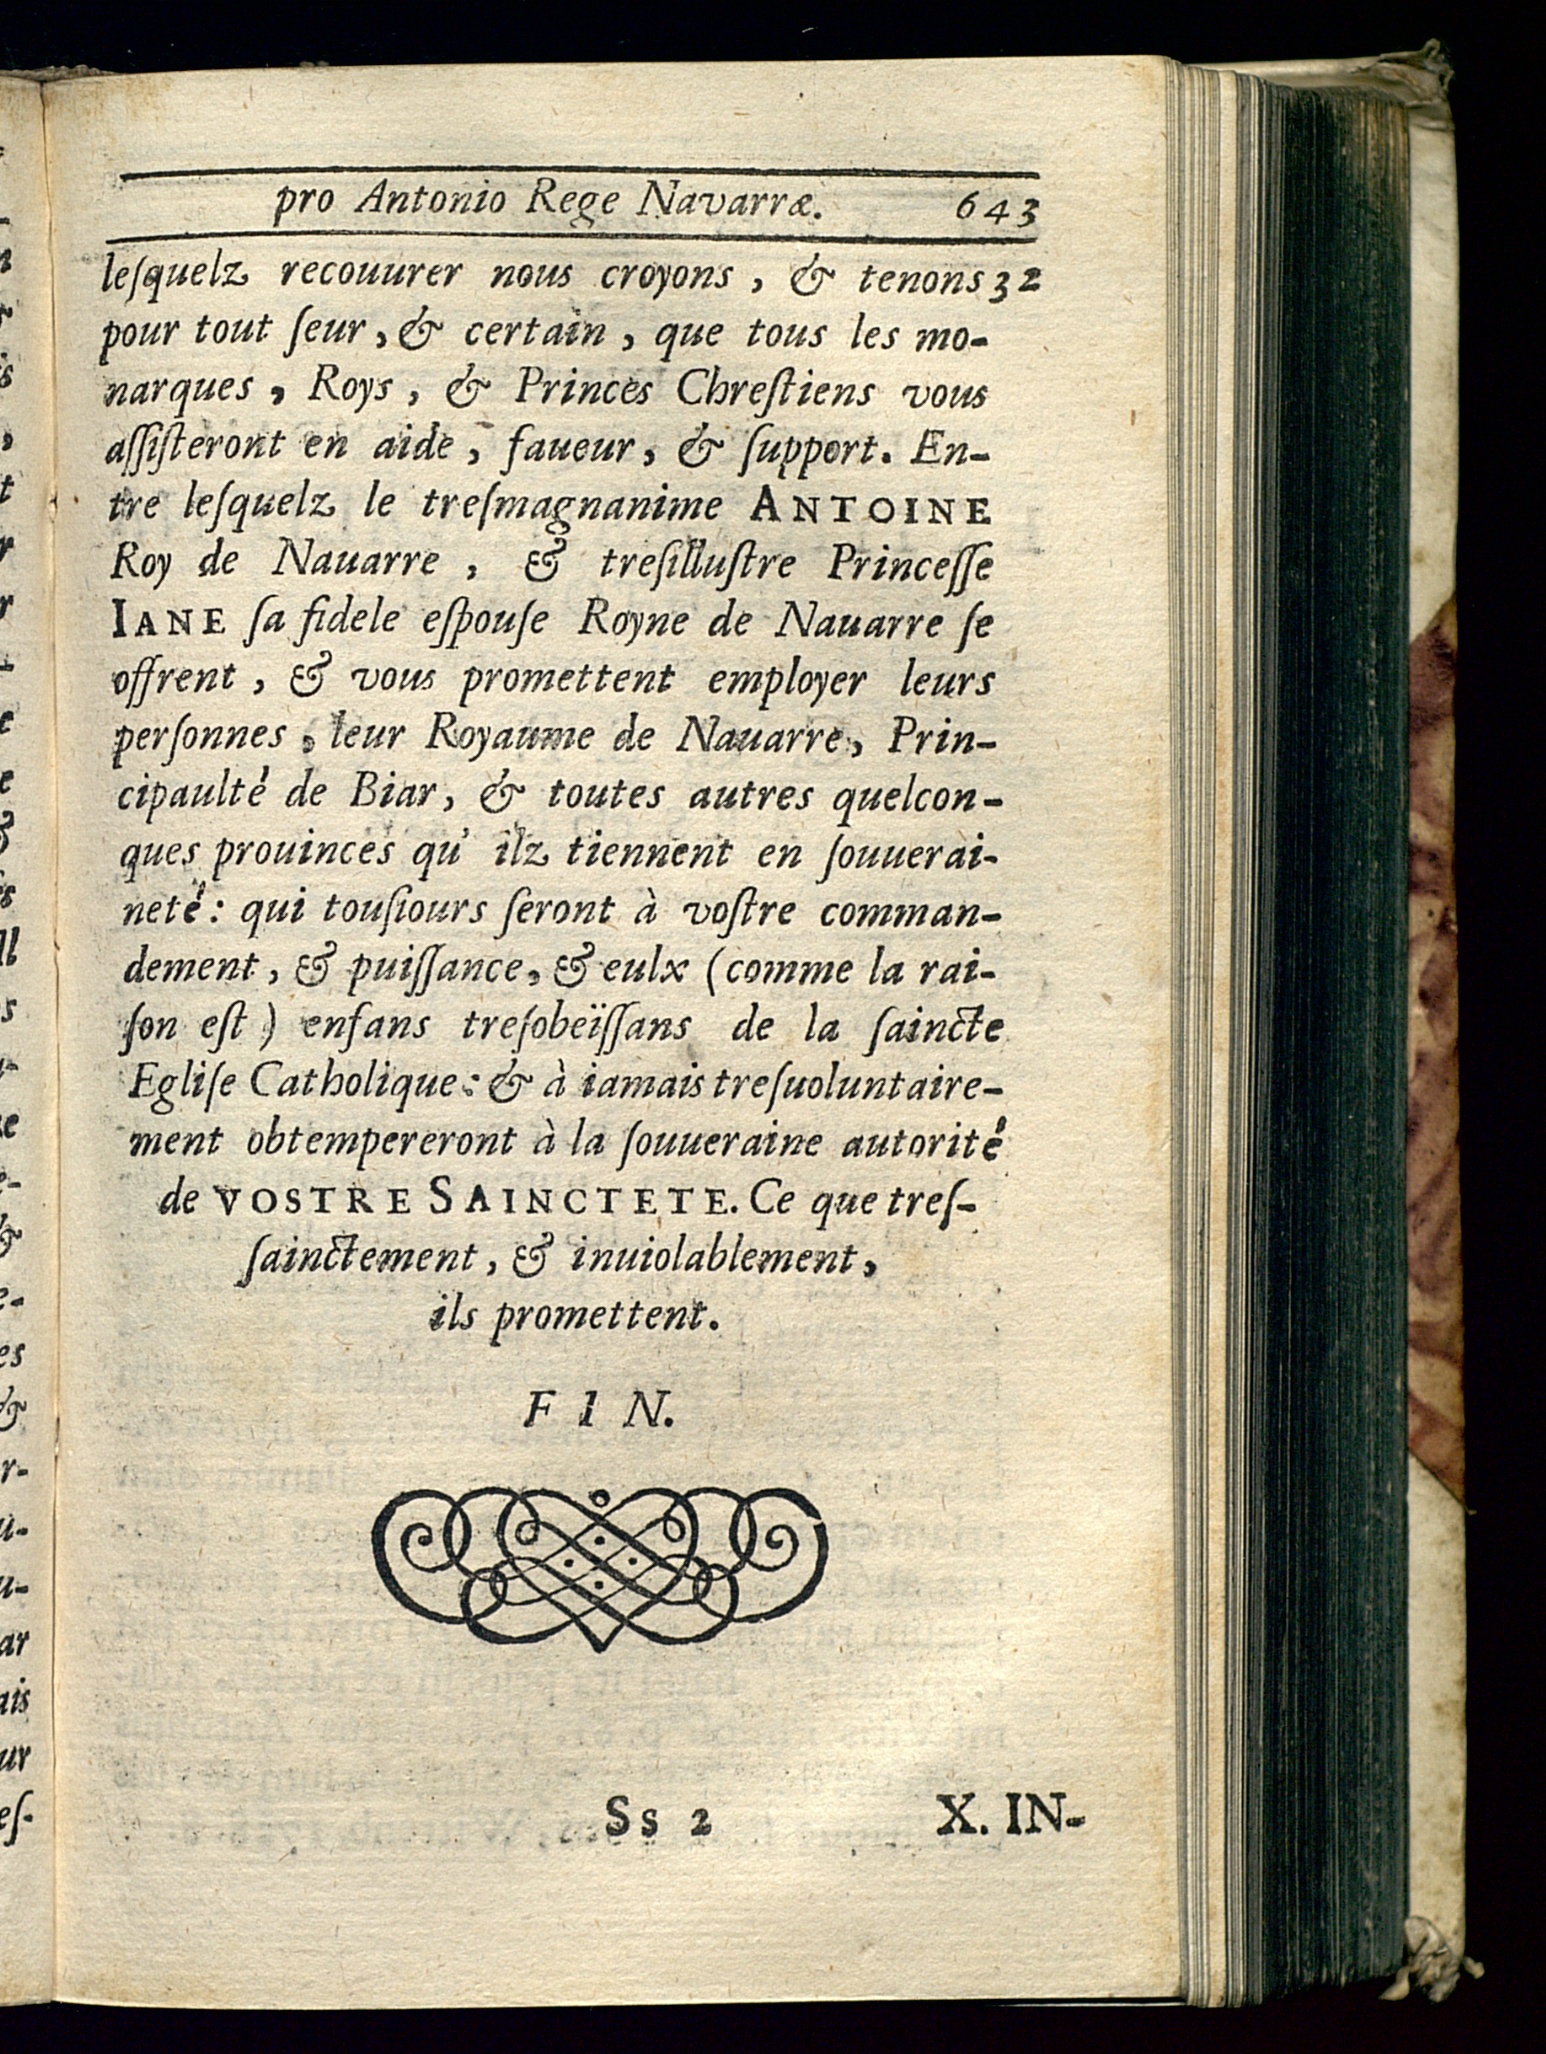 pro Antonio Rege Navarræ. 643
leſquelz recouurer nous croyons, & tenons 32
pour tout ſeur, & certain, que tous les mo-
narques, Roys, & Princes Chreſtiens vous
aſſiſteront en aide, faueur, & ſupport. En-
tre leſquelz le treſmagnanime ANTOINE
Roy de Nauarre, & treſilluſtre Princeſſe
IANE ſa fidele eſpouſe Royne de Nauarre ſe
offrent, & vous promettent employer leurs
perſonnes, leur Royaume de Nauarre, Prin-
cipaulté de Biar, & toutes autres quelcon-
ques prouinces qu' ilz tiennent en ſouuerai-
neté: qui touſiours ſeront à voſtre comman-
dement, & puiſſance, & eulx (comme la rai-
ſon eſt) enfans treſobeïſſans de la ſaincte
Egliſe Catholique: & à iamais treſuoluntaire-
ment obtempereront à la ſouueraine autorité
de VOSTRE SAINCTETE. Ce que treſ-
ſainctement, & inuiolablement,
ils promettent.
FIN.
Ss 2 X. IN-